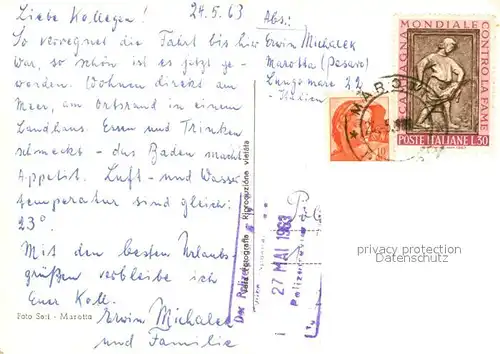 Liebe Kollegen! 24.5.63
So verregnet die Fahrt bis hier
war, so schön ist es jetzt ge-
worden. Wohnen direkt am
Meer, am Ortsrand in einem
Landhaus. Essen und Trinken
schmeckt - das Baden macht
Appetit. Luft- und Wasser
temperatur sind gleich:
23°.
Mit den besten Urlaubs-
grüßen verbleibe ich
Euer Koll.
Erwin Michalek
und Familie
Foto Seri - Marotta
Abs:
Erwin Michalek
Marotta (Pesaro)
Lungomare 22
- Italien
CAMPAGNA MONDIALE CONTRO LA FAME
POSTE ITALIANE L.30
MAROTTA
Vera fotografia - Riproduzione vietata
Der Polizei
27 MAI 1963
Polizei
privacy protection
Datenschutz